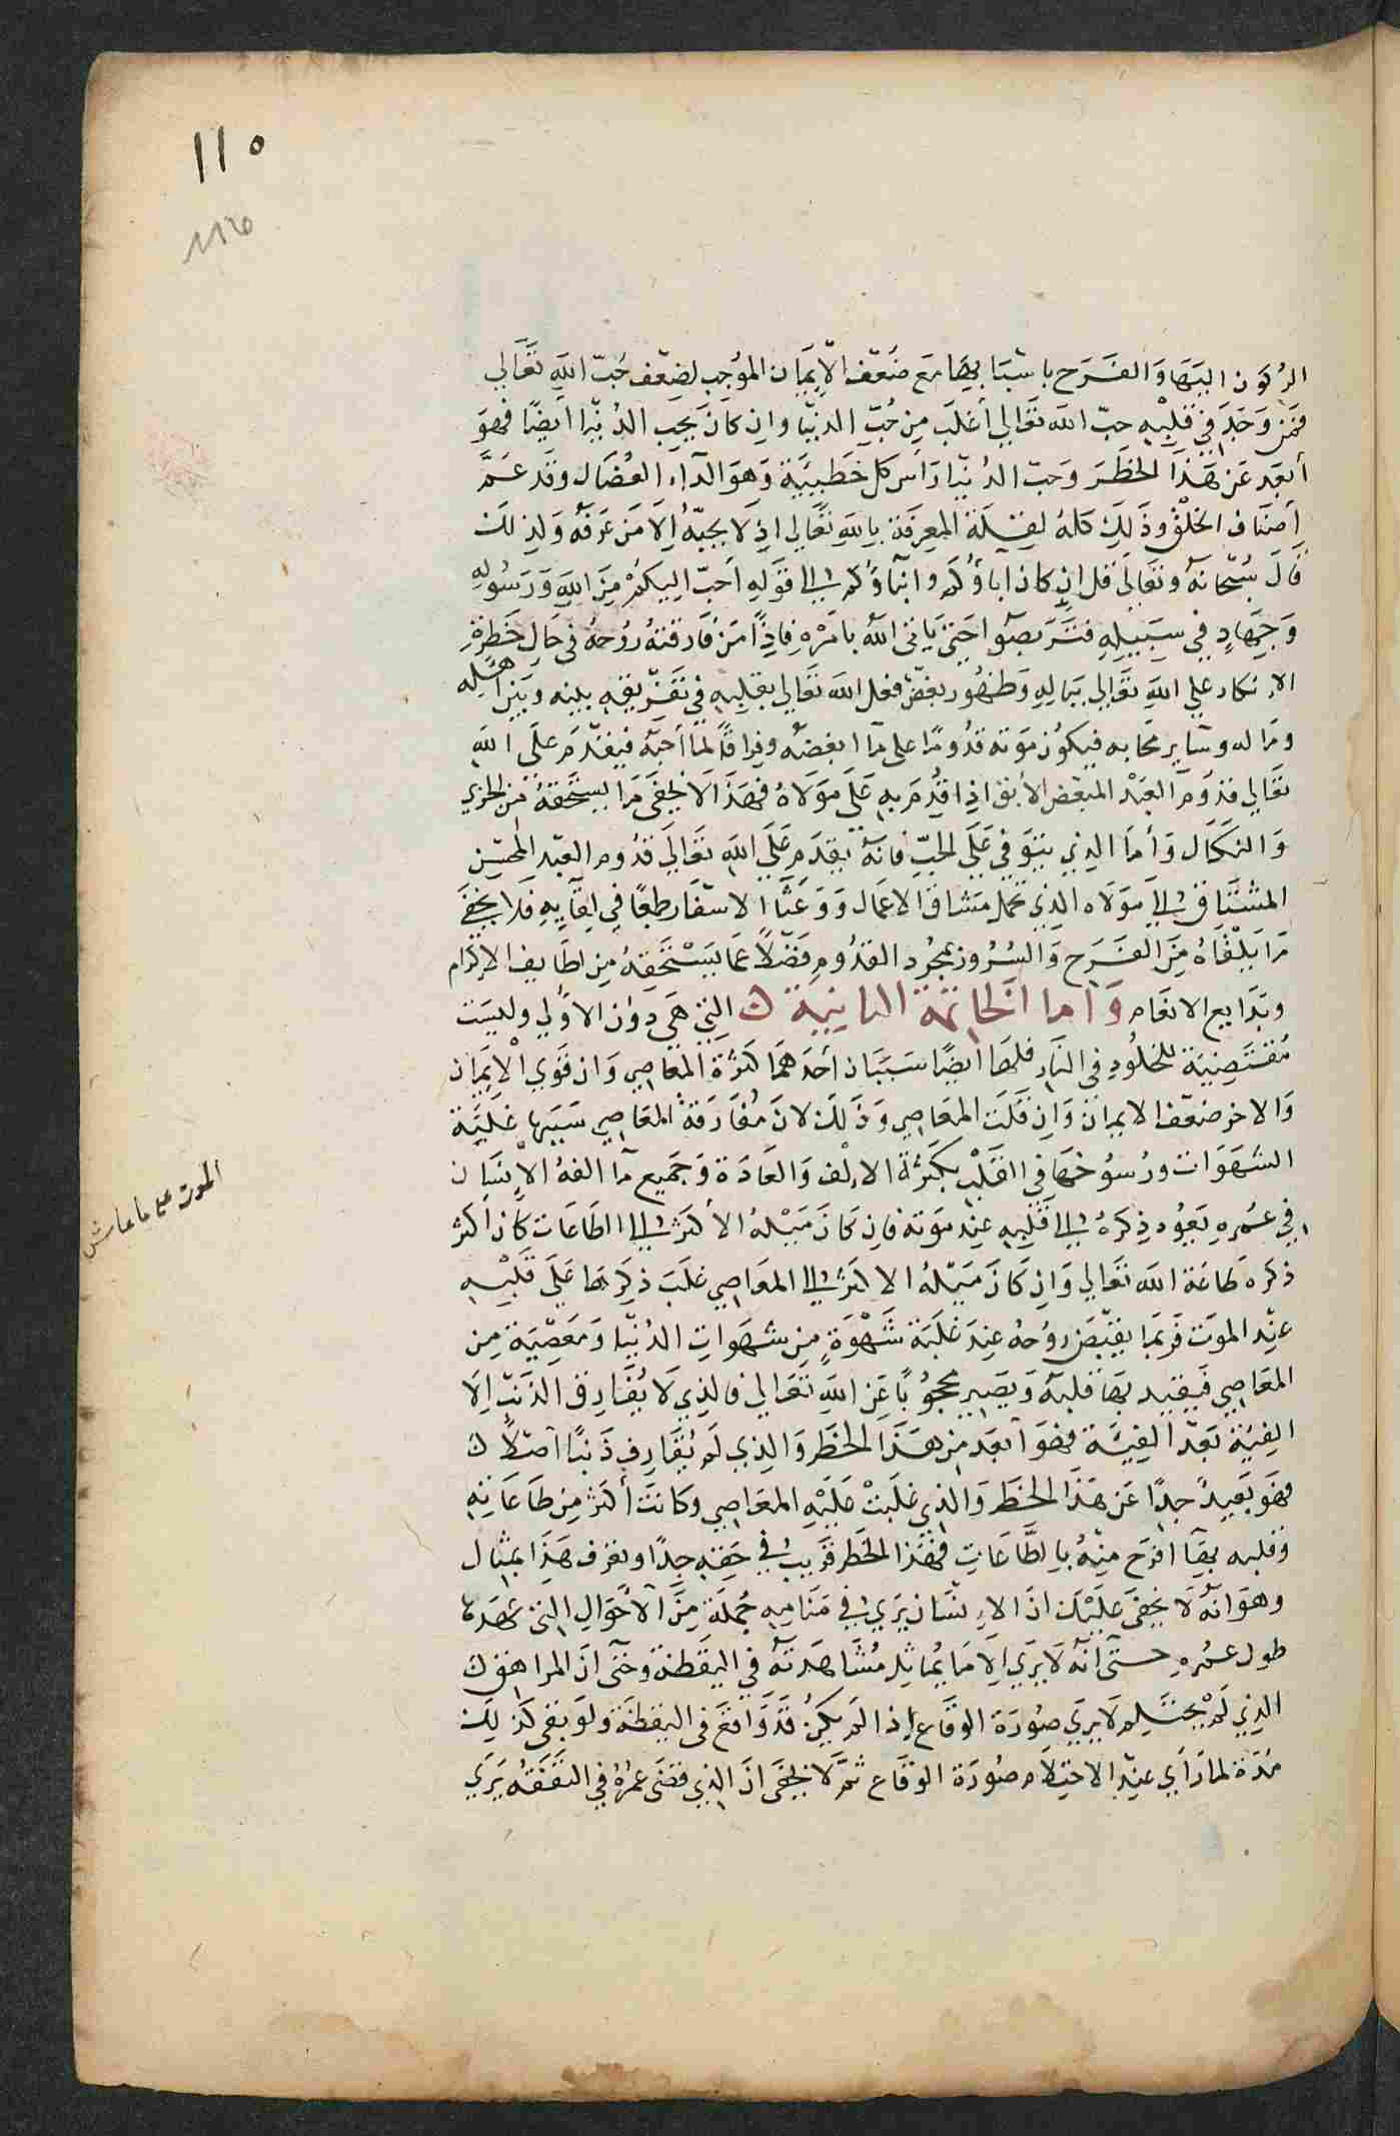 ١١٥
١١٥
الركون اليها والفرح باسبابها مع ضعف الايمان الموجب لضعف حب الله تعالى
فمن وجد في قلبه حب الله تعالى أغلب من حب الدنيا وان كان يحب الدنيا ايضا فهو
أبعد عن هذا الخطر وحب الدنيا راس كل خطيئة وهو الداء العضال وقد عم
أصناف الخلق وذلك كله لقلة المعرفة بالله تعالى اذ لا يحبه الا من عرفه ولذلك
قال سبحانه وتعالى قل ان كان اباؤكم وابناؤكم الى قوله احب اليكم من الله ورسوله
وجهاد في سبيله فتربصوا حتى ياتى الله بامره فاذا من فارقته روحه في حال خطرة
الانكار على الله تعالى بباله وظهور بغض فعل الله تعالى بقلبه في تفريقه بينه وبين أهله
وماله وساير محابه فيكون موته قدوما على ما ابغضه وفراقا لما أحبه فيقدم على الله
تعالى قدوم العبد المبغض الأبق اذا قدم به على مولاه فهذا لا يخفى ما يستحقه من الخزي
والنكال وأما الذي يتوفى على الحب فانه يقدم على الله تعالى قدوم العبد المحسن
المشتاق الى مولاه الذي تحمل مشاق الاعمال ووعثا الاسفار طمعا في لقايه فلا يخفى
ما يلقاه من الفرح والسرور بمجرد القدوم فضلا عما يستحقه من لطايف الاكرام
وبدايع الانعام وأما الخاتمة الثانية التي هي دون الاولى وليست
مقتضية للخلود في النار فلها ايضا سببان أحدهما كثرة المعاصي وان قوي الايمان
والاخر ضعف الايمان وان قلت المعاصي وذلك لان مقارفة المعاصي سببها غلبة
الشهوات ورسوخها في القلب بكثرة الالف والعادة وجميع ما الفه الانسان
في عمره يعود ذكره الى قلبه عند موته فان كان ميله الأكثر الى الطاعات كان أكثر
ذكره طاعة الله تعالى وان كان ميله الاكثر الى المعاصي غلب ذكرها على قلبه
عند الموت فربما يقبض روحه عند غلبة شهوة من شهوات الدنيا ومعصية من
المعاصي فيقيد بها قلبه ويصير محجوبا عن الله تعالى فالذي لا يقارف الذنب الا
الفينة بعد الفينة فهو أبعد من هذا الخطر والذي لم يقارف ذنبا أصلا
فهو بعيد جدا عن هذا الخطر والذي غلبت عليه المعاصي وكانت أكثر من طاعاته
وقلبه بها افرح منه بالطاعات فهذا الخطر قريب في حقه جدا ويعرف هذا بمثال
وهو انه لا يخفى عليك ان الانسان يرى في منامه جملة من الأحوال التي عهدها
طول عمره حتى أنه لا يرى الا ما يماثل مشاهدته في اليقظة وحتى ان المراهق
الذي لم يحتلم لا يرى صورة الوقاع إذا لم يكن قد واقع فى اليقظة ولو بقى كذلك
مدة لما رأى عند الاحتلام صورة الوقاع ثم لا يخفى ان الذي قضى عمره في التفقه يرى
الموت على ما عاش